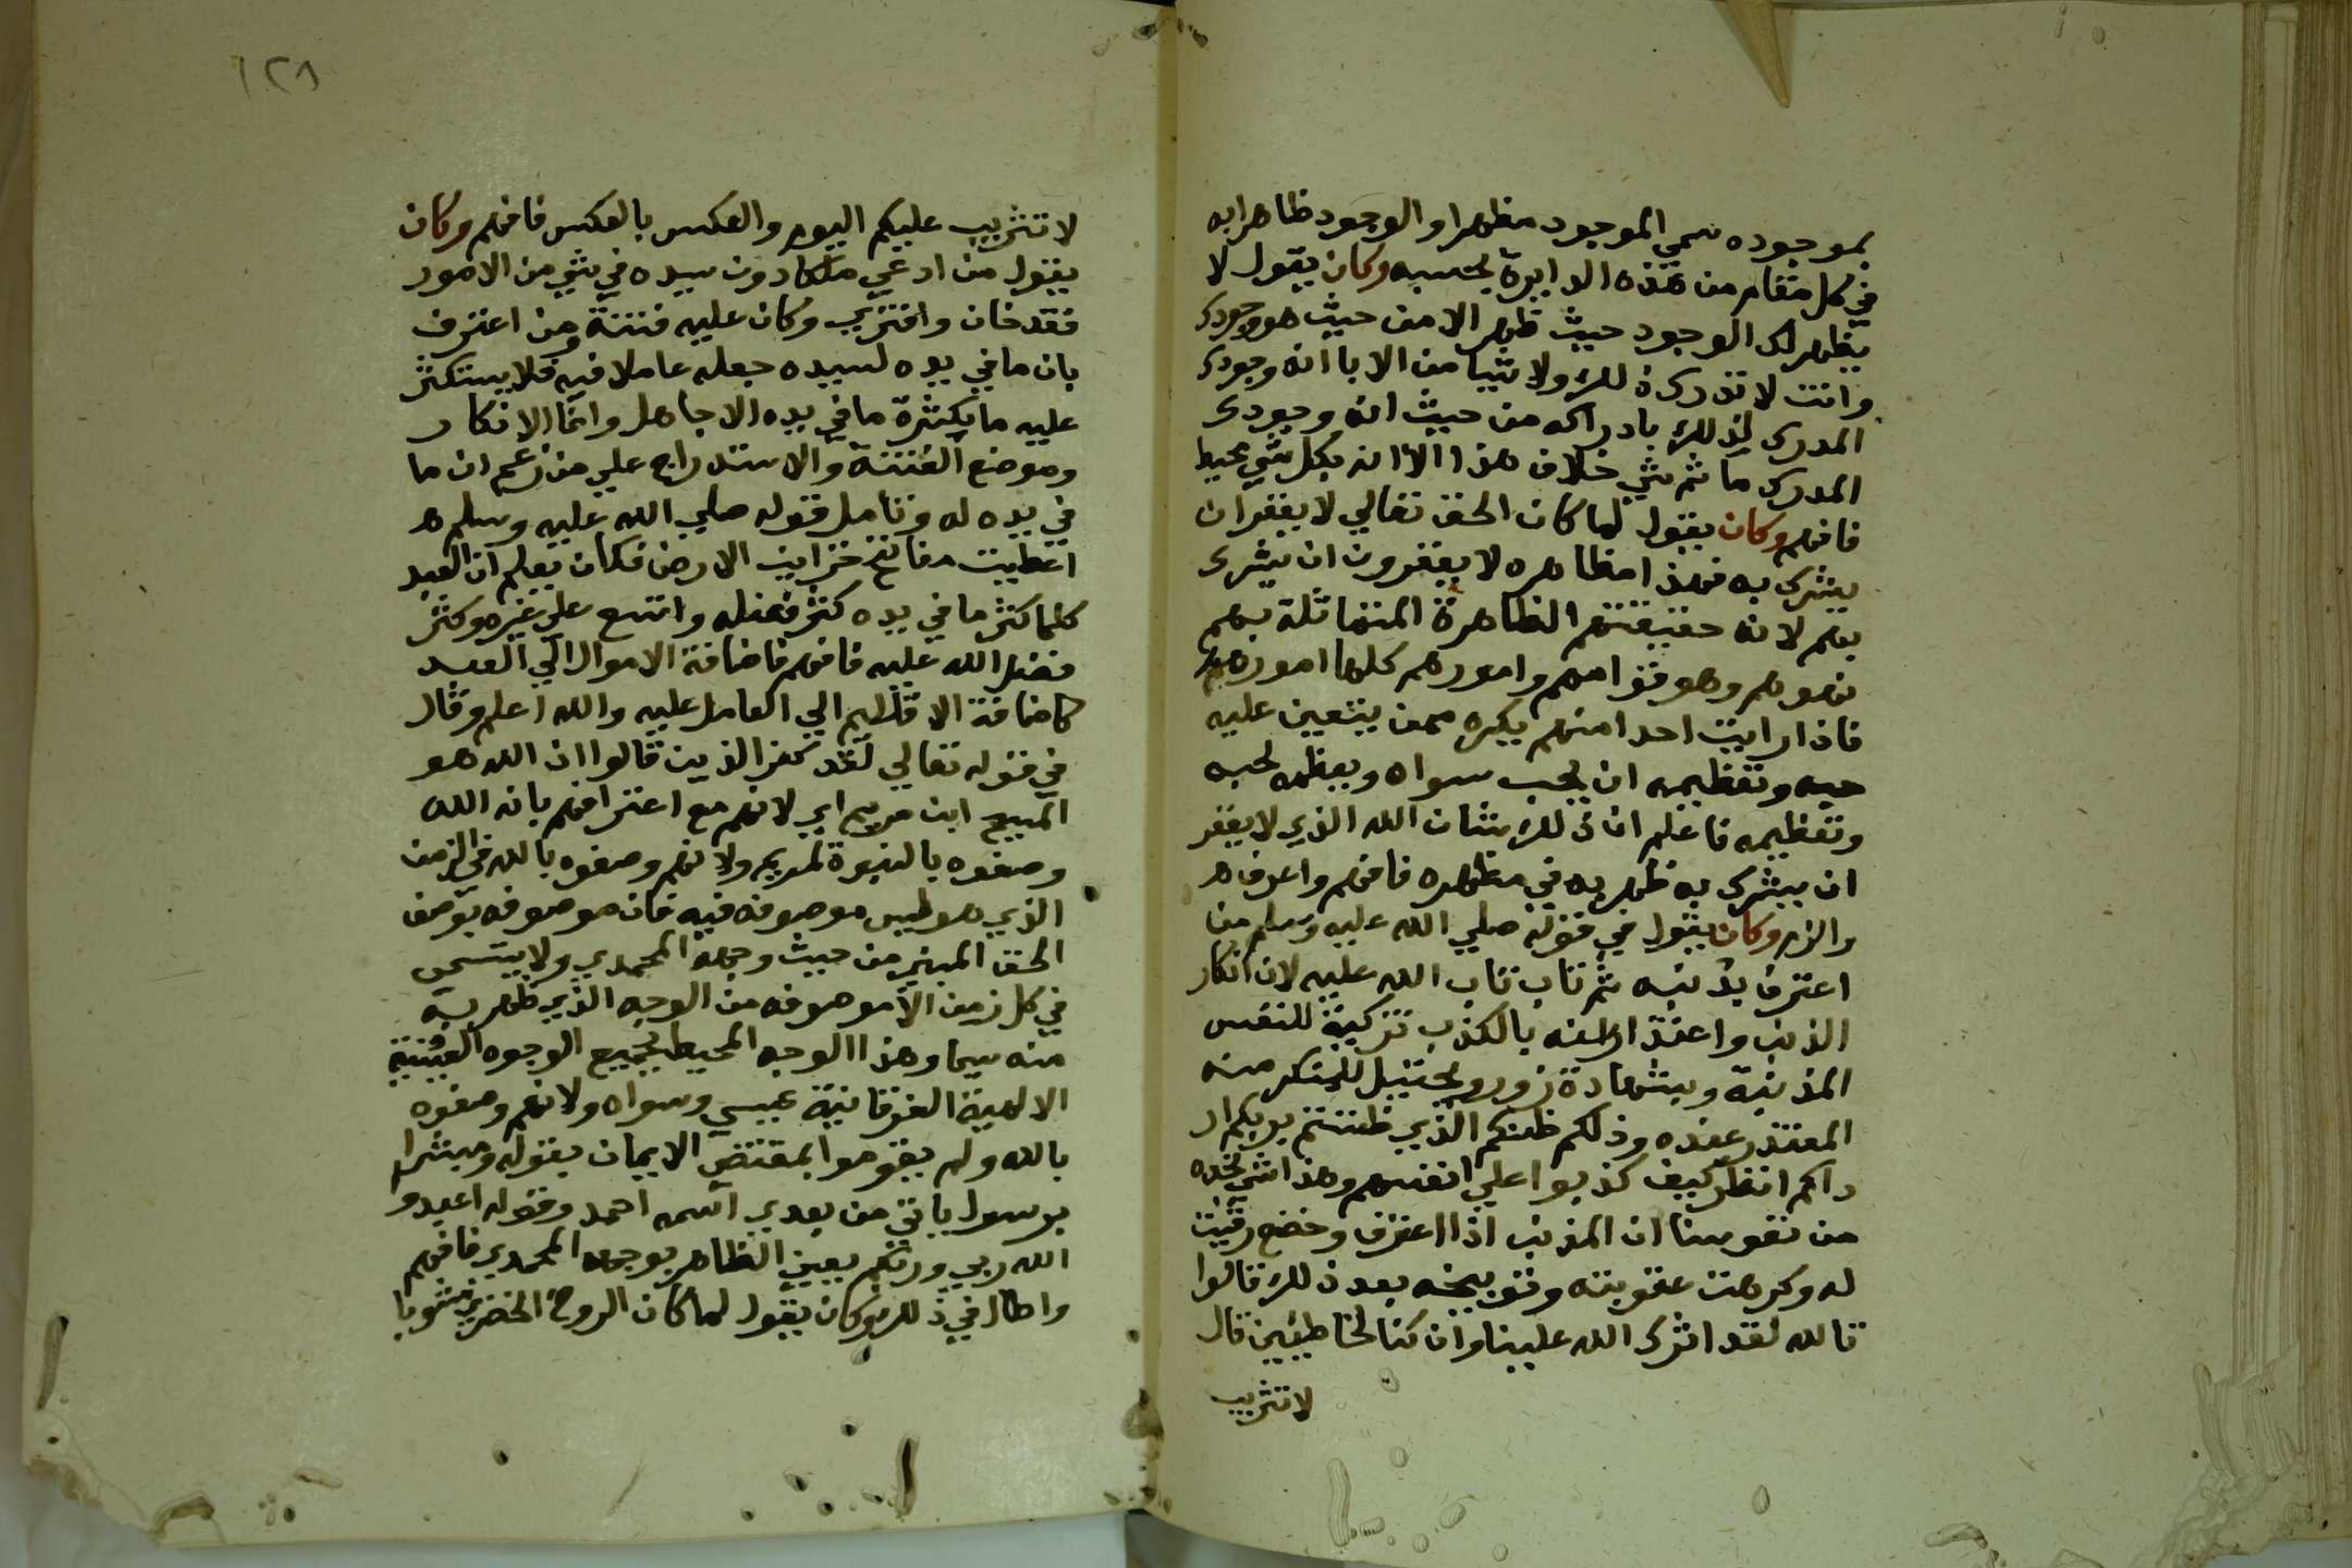 بموجوده سمي الموجود مظهرا والوجود ظاهرا به
في كل مقام من هذه الدايرة بحسبه وكان يقول لا
يظهر لك الوجود حيث ظهر الا من حيث هو وجودك
وانت لا تدرك ذلك ولا شيا من الا با انه وجودك
المدرك لذلك بادراكه من حيث انه وجودك
المدرك ما ثم شي خلاف هذا الا انه بكل شي محيط
فافهم وكان يقول لما كان الحق تعالي لا يغفر ان
يشرك به فهذا مظاهره لا يغفرون ان يشرك
بهم لانه حقيقتهم الظاهرة المتماثلة بهم
فهو هم وهو قوامهم وامورهم كلها اموره
فاذا رايت احدا منهم يكره ممن يتعين عليه
حبه وتعظيمه ان يحب سواه ويعظمه لحبه
وتعظيمه فاعلم ان ذلك شان الله الذي لا يغفر
ان يشرك به ظهر به في مظهره فافهم واعرف
والزم وكان يقول في قوله صلي الله عليه وسلم من
اعترف بذنبه ثم تاب تاب الله عليه لان انكار
الذنب واعتذار عنه بالكذب تزكية للنفس
المذنبة وشهادة زور وتخييل للمنكر منه
المعتذر عنده وذلكم ظنكم الذي ظننتم بربكم ار
داكم انظر كيف كذبوا علي انفسهم وهذا شي نجده
من نفوسنا ان المذنب اذا اعترف وخضع رقيت
له وكرهت عقوبته وتوبيخه بعد ذلك قالوا
تالله لقد اثرك الله علينا وان كنا لخاطيين قال
لا تثريب
١٢٨
لا تثريب عليكم اليوم والعكس بالعكس فافهم وكان
يقول من ادعي ملكا دون سيده في شي من الامور
فقد خان وافتري وكان عليه فتنة ومن اعترف
بان ما في يده لسيده جعله عاملا فيه فلا يستكثر
عليه ما يكثرة ما في يده الا جاهل وانما الانكار
وموضع الفتنة والاستدراج علي من زعم ان ما
في يده له وتامل قوله صلي الله عليه وسلم
اعطيت مفاتح خزاين الارض فكان يعلم ان العبد
كلما كثر ما في يده كثر فضله واتسع علي غيره وكثر
فضل الله عليه فافهم فاضافة الاموال الي العبد
كاضافة الاقاليم الي العامل عليه والله اعلم وقال
في قوله تعالي لقد كفر الذين قالوا ان الله هو
المسيح ابن مريم اي لانهم مع اعترافهم بانه الله
وصفوه بالبنوة لمريم ولانهم وصفوه بالله في الزمن
الذي هو ليس موصوفه فيه فان موصوفه بوصف
الحق المبين من حيث وجهه المحمدي ولا يتسمي
في كل زمن الا موصوفه من الوجه الذي ظهر به
منه سيما وهذا الوجه المحيط بجميع الوجوه العينية
الالهية الفرقانية عيسي وسواه ولانهم وصفوه
بالله ولم يقوموا بمقتضي الايمان بقوله ومبشرا
برسول ياتي من بعدي اسمه احمد وقوله اعبدو
الله ربي وربكم بعين الظاهر بوجهه المحمدي فافهم
واطال في ذلك وكان يقول لما كان الروح الخضري مشوبا